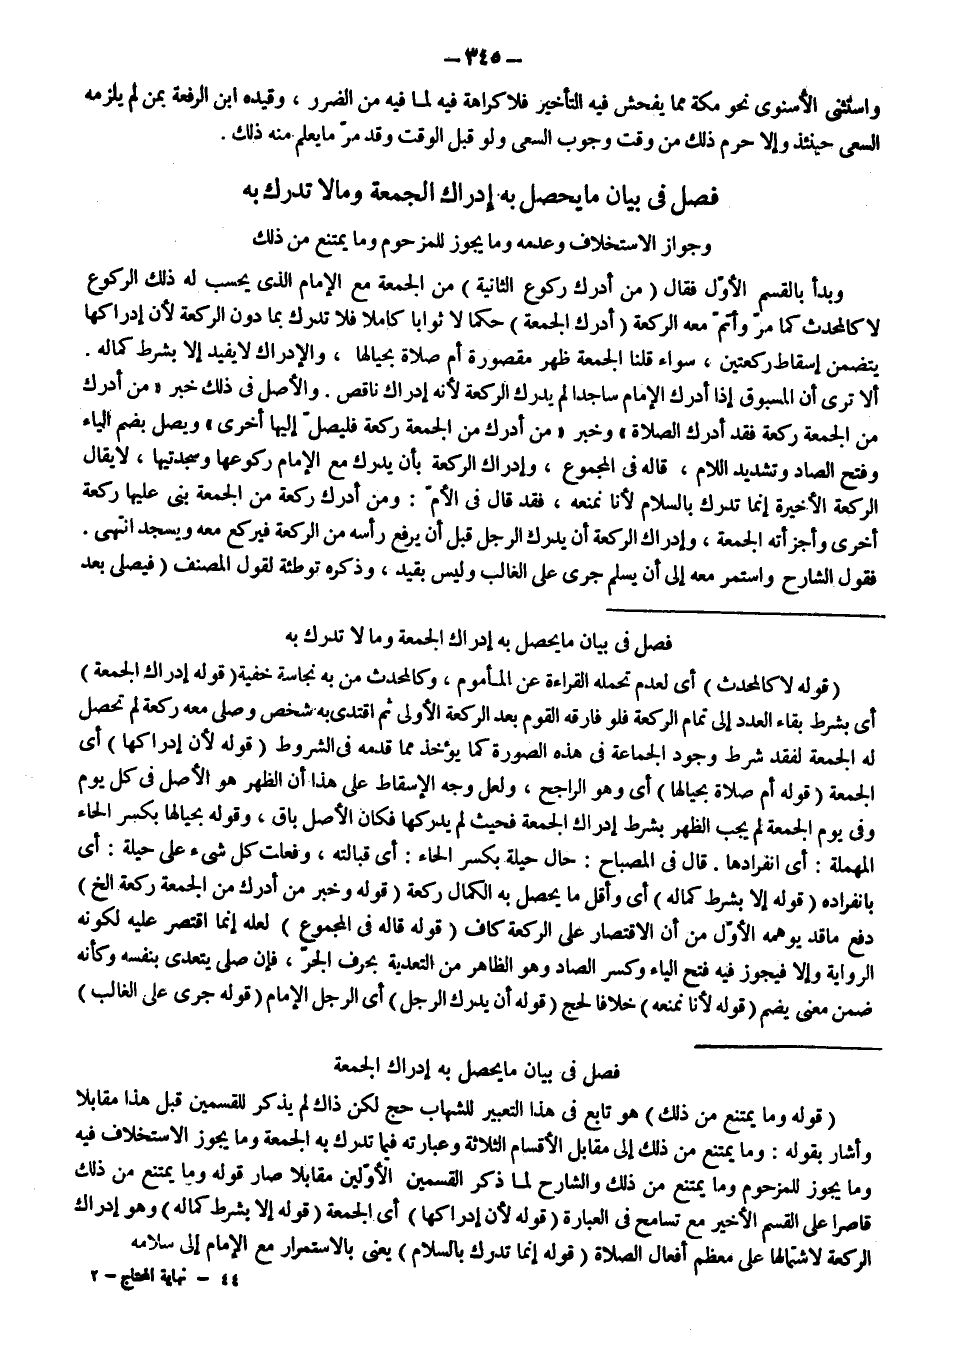 – ٣٤٥ –
واستثنى الأسنوى نحو مكة مما يفحش فيه التأخير فلاكراهة فيه لما فيه من الضرر ، وقيده ابن الرفعة بمن لم يلزمه
السعى حينئذ وإلا حرم ذلك من وقت وجوب السعى ولو قبل الوقت وقد مرّ مايعلم منه ذلك .
فصل فى بيان مايحصل به إدراك الجمعة ومالا تدرك به
وجواز الاستخلاف وعدمه ومايجوز للمزحوم وما يمتنع من ذلك
وبدأ بالقسم الأوّل فقال ( من أدرك ركوع الثانية ) من الجمعة مع الإمام الذى يحسب له ذلك الركوع
لا كالمحدث كما مرّ وأتمّ معه الركعة ( أدرك الجمعة ) حكما لا ثوابا كاملا فلا تدرك بما دون الركعة لأن إدراكها
يتضمن إسقاط ركعتين ، سواء قلنا الجمعة ظهر مقصورة أم صلاة بحيالها ، والإدراك لايفيد إلا بشرط كماله .
ألا ترى أن المسبوق إذا أدرك الإمام ساجدا لم يدرك الركعة لأنه إدراك ناقص . والأصل فى ذلك خبر « من أدرك
من الجمعة ركعة فقد أدرك الصلاة » وخبر « من أدرك من الجمعة ركعة فليصلّ إليها أخرى » ويصل بضم الياء
وفتح الصاد وتشديد اللام ، قاله فى المجموع ، وإدراك الركعة بأن يدرك مع الإمام ركوعها وسجدتيها ، لايقال
الركعة الأخيرة إنما تدرك بالسلام لأنا نمنعه ، فقد قال فى الأمّ : ومن أدرك ركعة من الجمعة بنى عليها ركعة
أخرى وأجزأته الجمعة ، وإدراك الركعة أن يدرك الرجل قبل أن يرفع رأسه من الركعة فيركع معه ويسجد انتهى .
فقول الشارح واستمر معه إلى أن يسلم جرى على الغالب وليس بقيد ، وذكره توطئة لقول المصنف ( فيصلى بعد
فصل فى بيان مايحصل به إدراك الجمعة وما لا تدرك به
( قوله لا كالمحدث ) أى لعدم تحمله القراءة عن المأموم ، وكالمحدث من به نجاسة خفية ( قوله إدراك الجمعة )
أى بشرط بقاء العدد إلى تمام الركعة فلو فارقه القوم بعد الركعة الأولى ثم اقتدى به شخص وصلى معه ركعة لم تحصل
له الجمعة لفقد شرط وجود الجماعة فى هذه الصورة كما يؤخذ مما قدمه فى الشروط ( قوله لأن إدراكها ) أى
الجمعة ( قوله أم صلاة بحيالها ) أى وهو الراجح ، ولعل وجه الإسقاط على هذا أن الظهر هو الأصل فى كل يوم
وفى يوم الجمعة لم يجب الظهر بشرط إدراك الجمعة فحيث لم يدركها فكان الأصل باق ، وقوله بحيالها بكسر الحاء
المهملة : أى انفرادها . قال فى المصباح : حال حيلة بكسر الحاء : أى قبالته ، وفعلت كل شىء على حيلة : أى
بانفراده ( قوله إلا بشرط كماله ) أى وأقل ما يحصل به الكمال ركعة ( قوله وخبر من أدرك من الجمعة ركعة الخ )
دفع ماقد يوهمه الأوّل من أن الاقتصار على الركعة كاف ( قوله قاله فى المجموع ) لعله إنما اقتصر عليه لكونه
الرواية وإلا فيجوز فيه فتح الياء وكسر الصاد وهو الظاهر من التعدية بحرف الجرّ ، فإن صلى يتعدى بنفسه وكأنه
ضمن معنى يضم ( قوله لأنا نمنعه ) خلافا لحج ( قوله أن يدرك الرجل ) أى الرجل الإمام ( قوله جرى على الغالب )
فصل فى بيان مايحصل به إدراك الجمعة
( قوله وما يمتنع من ذلك ) هو تابع فى هذا التعبير للشهاب حج لكن ذاك لم يذكر للقسمين قبل هذا مقابلا
وأشار بقوله : وما يمتنع من ذلك إلى مقابل الأقسام الثلاثة وعبارته فيما تدرك به الجمعة وما يجوز الاستخلاف فيه
وما يجوز للمزحوم وما يمتنع من ذلك والشارح لما ذكر القسمين الأوّلين مقابلا صار قوله وما يمتنع من ذلك
قاصرا على القسم الأخير مع تسامح فى العبارة ( قوله لأن إدراكها ) أى الجمعة ( قوله إلا بشرط كماله ) وهو إدراك
الركعة لاشتمالها على معظم أفعال الصلاة ( قوله إنما تدرك بالسلام ) يعنى بالاستمرار مع الإمام إلى سلامه
٤٤ – نهاية المحتاج – ٢